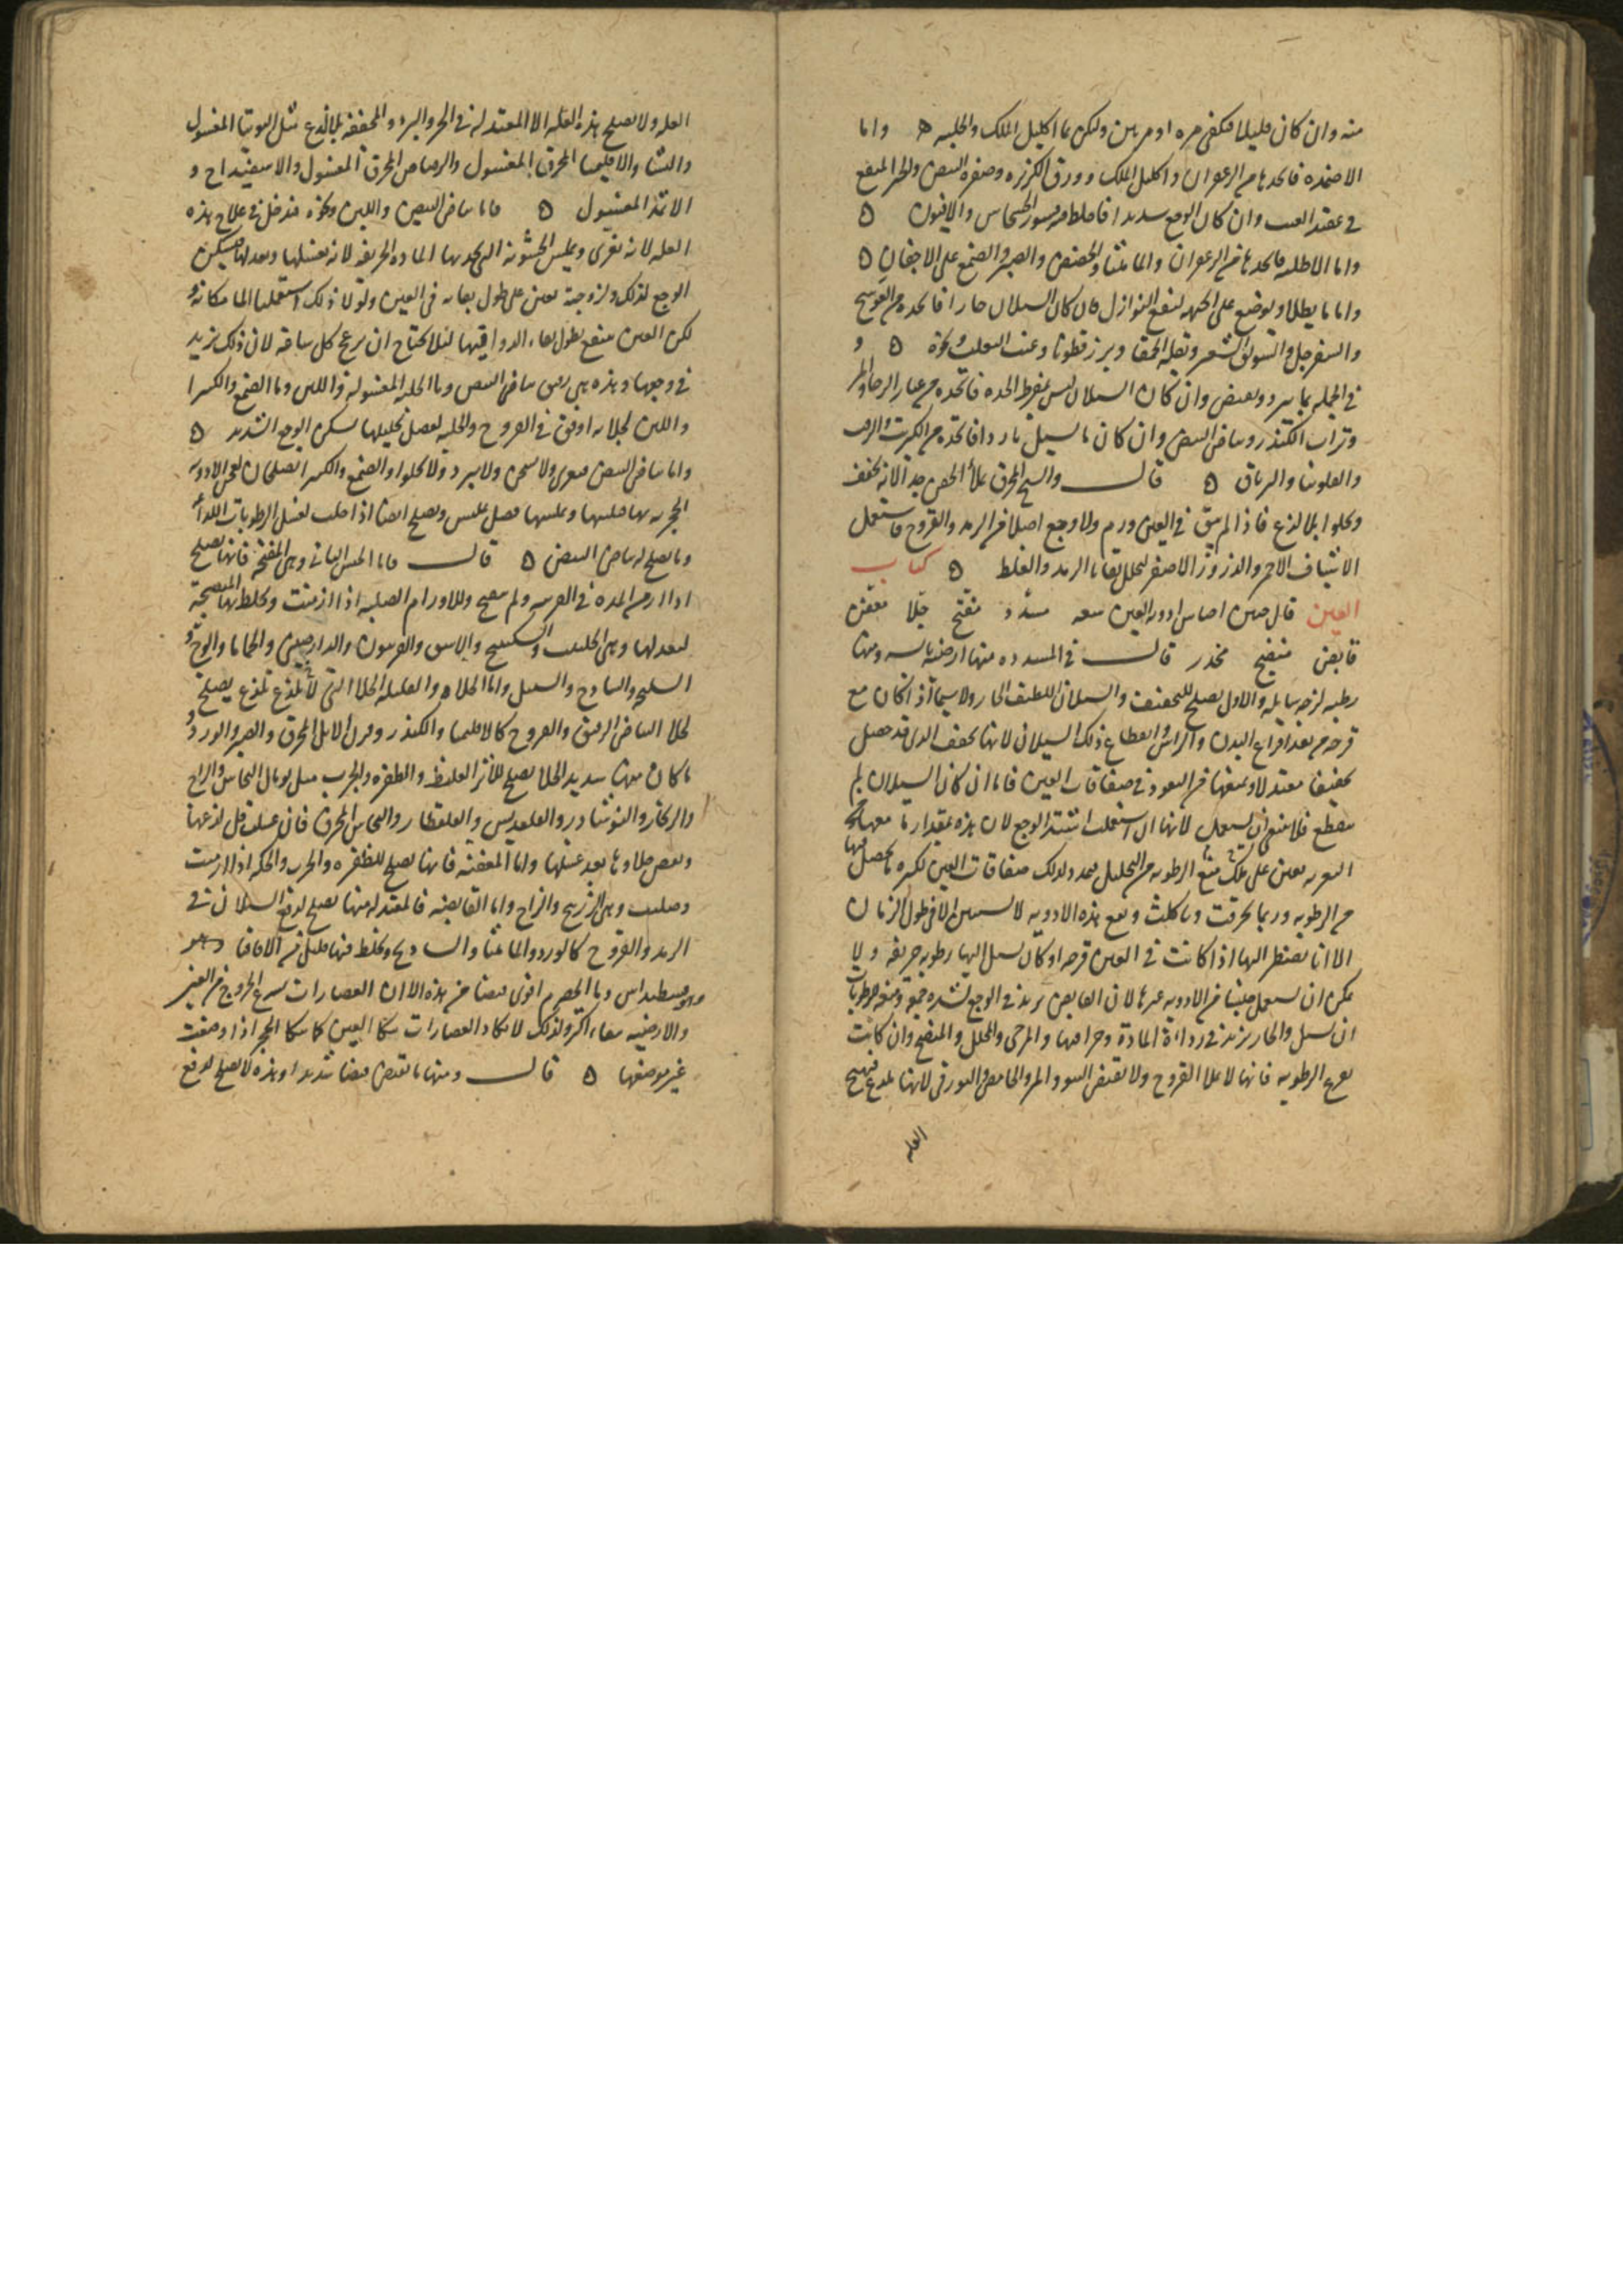 منه وان كان قليلا فيكفى مره او مرتين وليكن بماء اكليل الملك والحلبه ه واما
الاضمده فاتخذها من الزعفران واكليل الملك وورق الكزبره وصفره البيض والخبز المنقع
فى عقيد العنب وان كان الوجع شديدا فاخلط فيه قشور الخشخاس والافيون ه
واما الاطليه فاتخذها من الزعفران والماميثا والحضض والصبر والصمغ على الاجفان ه
واما ما يطلا ويوضع على الجبهه لينفع النوازل فان كان السيلان حارا فاتخذه من العوسج
والسفرجل والسويق الشعير وبقله الحمقا وبزر قطونا وعنب الثعلب ونحوه ه و
فى الجمله بما يبرد ويقبض وان كان السيلان ليس بمفرط الحده فاتخذه من غبار الرحا والمر
وتراب الكندر وبياض البيض وان كان ما يسيل باردا فاتخذه من الكبريت والزفت
والفلونيا والترياق ه قال والشيح المحرق يملأ الحفر جدا لانه يجفف
ويحلو بلا لذع فاذا لم يبق فى العين ورم ولا وجع اصلا من الرمد والقروح فاستعمل
الاشياف الاحمر والذرور الاصفر ليحلل بقايا الرمد والغلظ ه كتاب
العين قال حنين اجناس ادويه العين سبعه مسدد مفتح جلا معفن
قابض منضج مخدر قال فى المسدده منها ارضيه يابسه ومنها
رطبه لزجه سايله والاول يصلح للتجفيف والسيلان اللطيف الحار ولا سيما اذا كان مع
قرحه من بعد افراغ البدن والراس وانقطاع ذلك السيلان لانها تجفف الذى قد حصل
تجفيفا معتدلا ويمنعها من النفوذ فى صفاقات العين فاما ان كان السيلان لم
ينقطع فلا ينبغى ان يستعمل لانها ان استعملت اشتد الوجع لان هذه بمقدار ما معها من
التغريه تعين على ذلك منع الرطوبه من التحليل فيمدد لذلك صفاقات العين لكثره ما يحصل فيها
من الرطوبه وربما تخرقت وتاكلت ونفع هذه الادويه لا يستبين الا فى طول الزمان
الا انا نضطر اليها اذا كانت فى العين قرحه او كان يسيل اليها رطوبه حريفه ولا
يمكن ان يستعمل جنسا من الادويه غيرها لان القابض يزيد فى الوجع لشده جمعه ومنعه الرطوبات
ان تسيل والحار يزيد فى رداءة المادة وحرافتها والمرخى والمحلل والمنضج وان كانت
تفرغ الرطوبه فانها لا تملا القروح ولا تقبض النتو والمر والحامض والبورقى لانها تلذع فتهيج
العله
العله ولا يصلح لهذه العله الا المعتدله فى الحر والبرد والمجففه بلا لذع مثل التوتيا المغسول
والنشا والاقليميا المحرق المغسول والرصاص المحرق المغسول والاسفيداج و
الاثمد المغسول ه فاما بياض البيض واللبن ونحوه فيدخل فى علاج هذه
العله لانه يغرى ويملس الخشونه التى تحدثها الماده الحريفه لانه يغسلها ويعدلها فيسكن
الوجع لذلك ولزوجته تعين على طول بقايه فى العين ولولا ذلك استعملنا الما مكانه و
لكن العين تنتفع بطول بقاء الدوا فيها لئلا يحتاج ان يزعج كل ساعه لان ذلك يزيد
فى وجعها وهذه هى رقيق بياض البيض وماء الحلبه المغسوله واللبن وماء الصمغ والكثيرا
واللبن لجلايه اوفق فى القروح والحلبه بفضل تحليلها تسكن الوجع الشديد ه
واما بياض البيض فيغرى ولا يسخن ولا يبرد ولا يحلوا والصمغ والكثيرا يصلحان لعجن الادويه
الحجريه بها فيلينها ويملسها فضل تمليس ويصلح ايضا اذا حلت لغسل الرطوبات اللذاعه
وما يصلح له بياض البيض ه قال فاما الجنس الثانى وهى المفتحه فانها تصلح
اذا ازمن المده فى القرنيه ولم تنضج وللاورام الصلبه اذا ازمنت وتخلط بها المنضجه
لتعدلها وهى الحلتيت والسكبينج والاسق والفربيون والدارصينى والحماما والوج و
السليخه والساذج والسنبل واما الجلاء والقليله الجلا التى لا تلذع تلذيع يصلح
لجلا البياض الرقيق والقروح كالاقليميا والكندر وقرن الايل المحرق والصبر والورد و
ما كان منها شديد الجلا يصلح للاثر الغليظ والظفره والجرب مثل توبال النحاس والزاج
والزنجار والنوشادر والقلقديس والقلقطار والنحاس المحرق فان غسلت قل لذعها
ونقص جلاوها بعد غسلها واما المعفنه فانها تصلح للظفره والجرب والحكه اذا ازمنت
وصلبت وهى الزرنيخ والزاج واما القابضه فالمعتدله منها يصلح لدفع السيلان فى
الرمد والقروح كالورد والماميثا والساذج ويخلط فيها قليل من الاقاقيا
وهيوفسطيداس وما الحصرم اقوى قبضا من هذه الا ان العصارات سرع الخروج من العين
والارضيه بقاء اكثر ولذلك لا تكاد العصارات تنكا العين كما تنكا الحجر اذا وضعت
غير موضعها ه قال ومنها ما يقبض قبضا شديدا وهذه لا يصلح لدفع